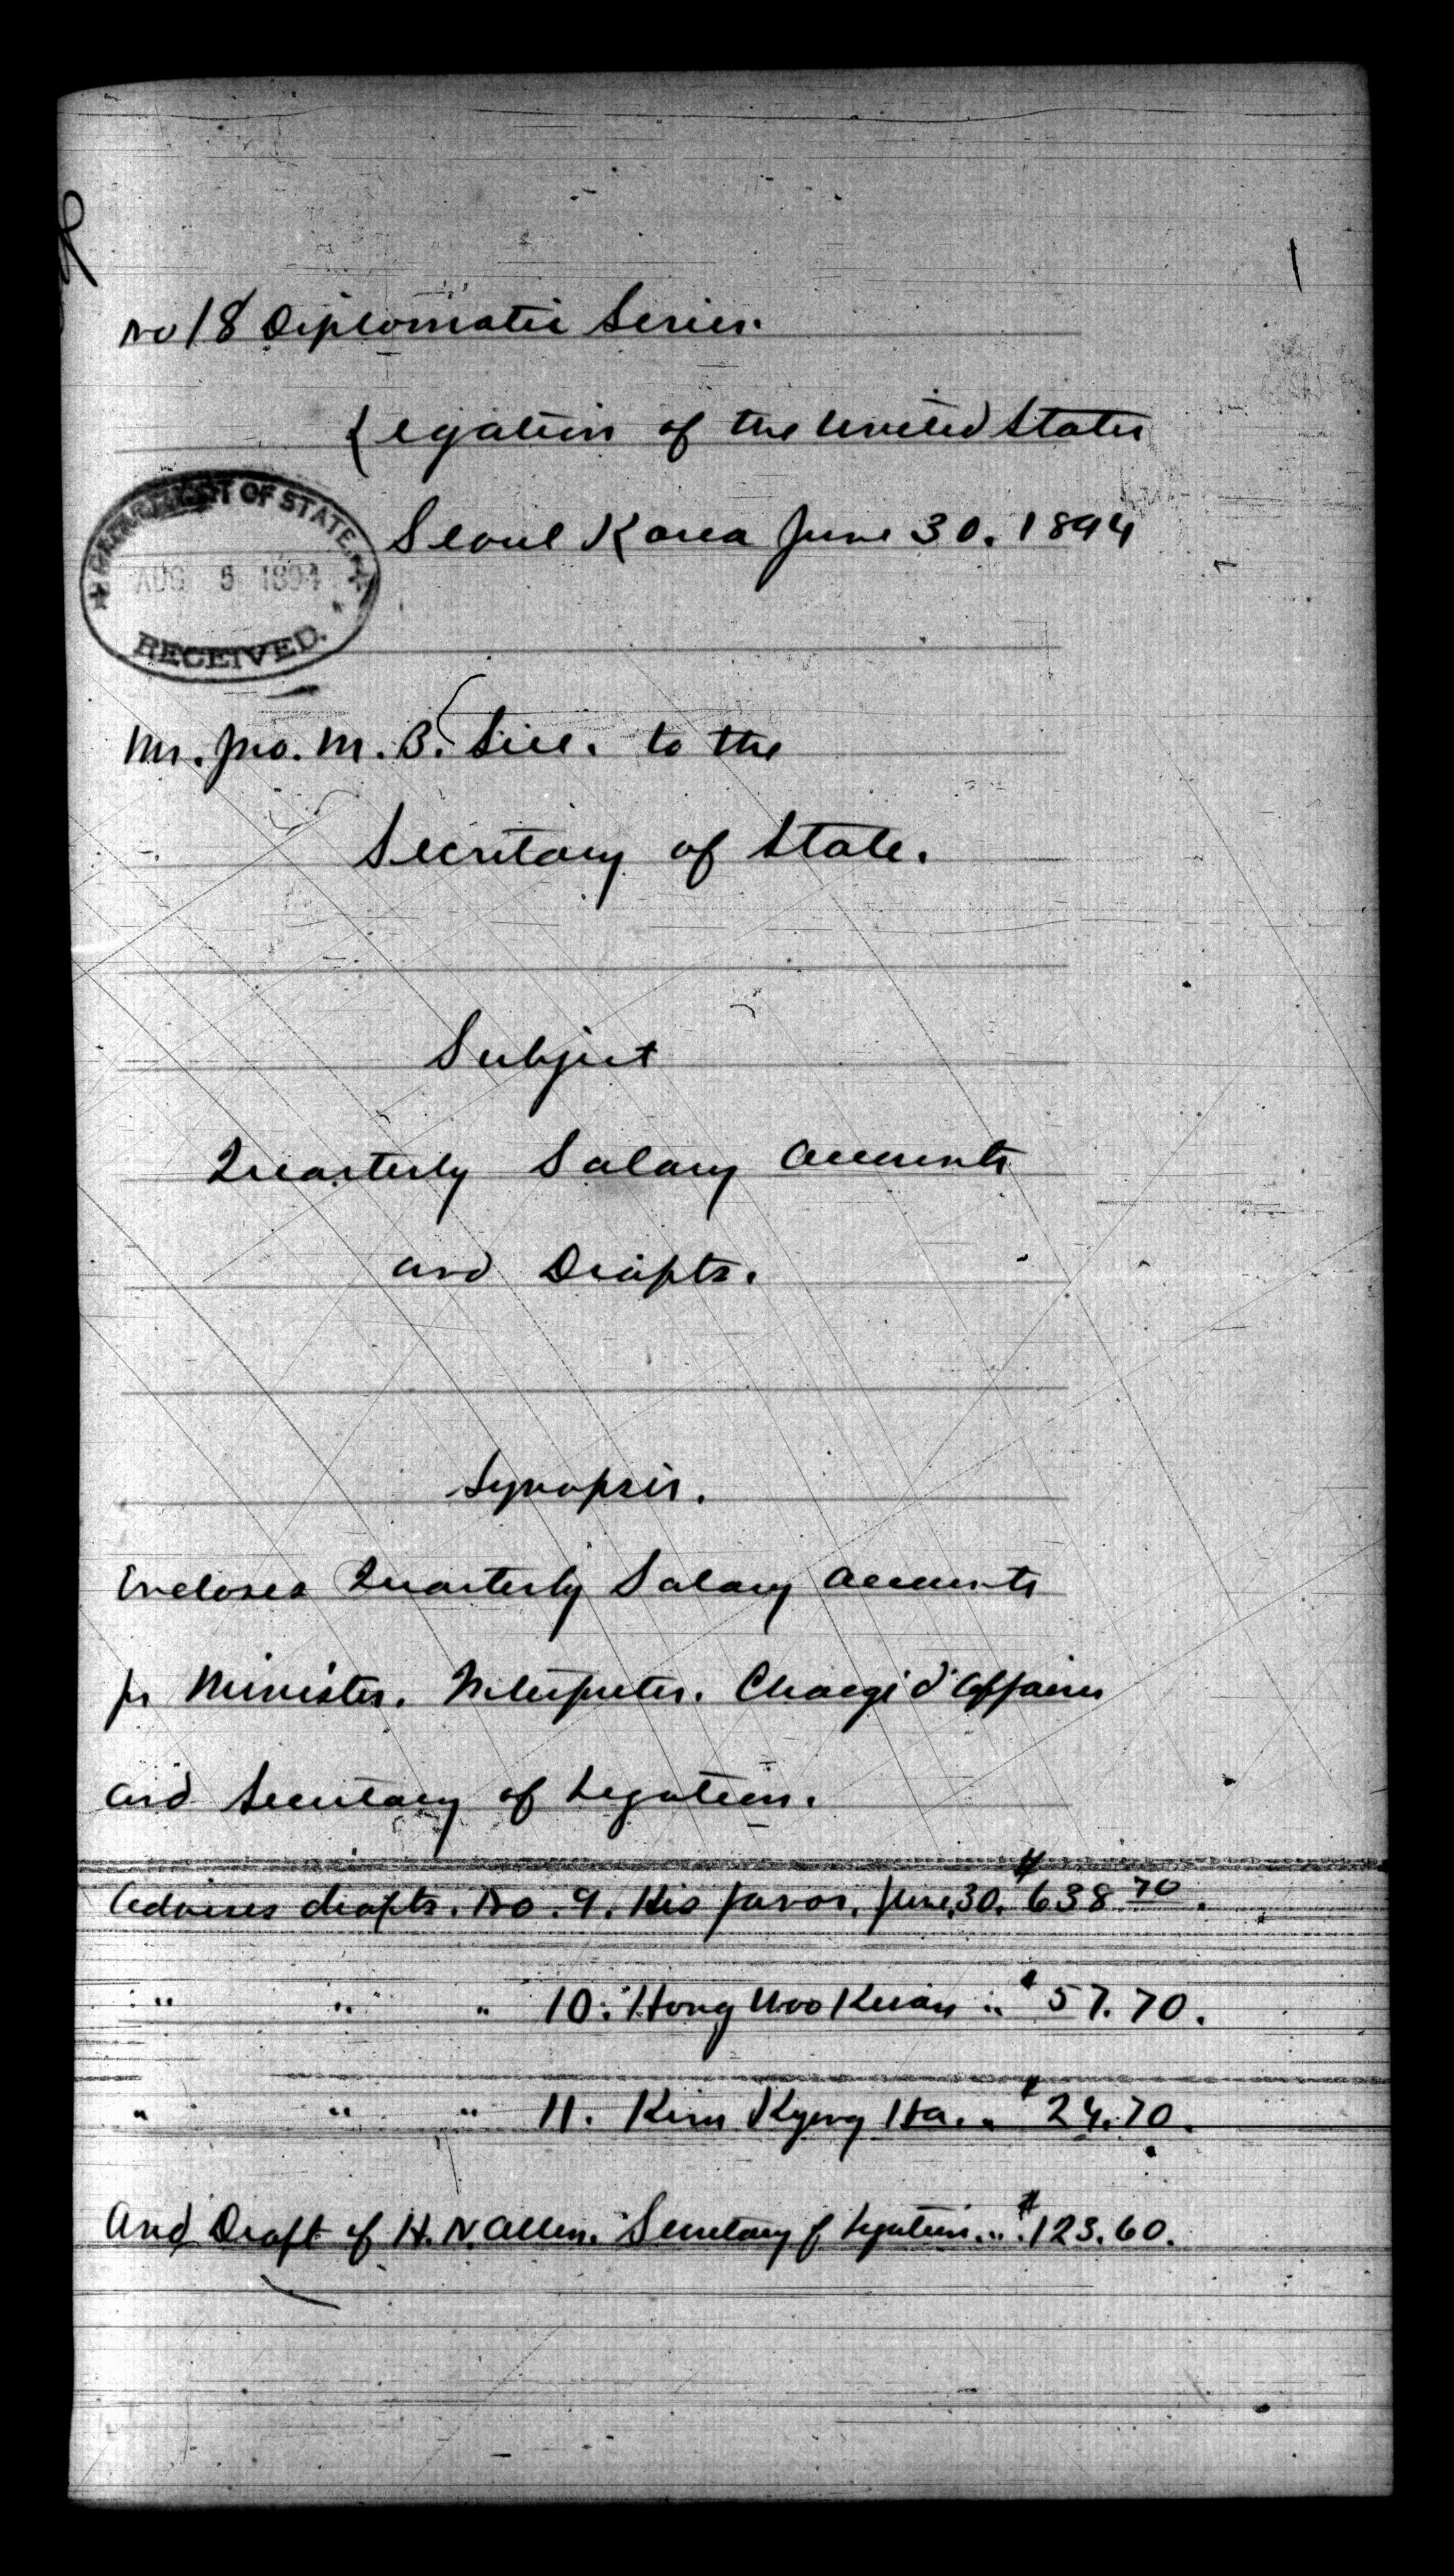 No 18 Diplomatic Series.
Legation of the United States
Seoul Korea June 30. 1894
DEPARTMENT OF STATE
AUG 6 1894
RECEIVED.
Mr. Jno. M. B. Sill. to the
Secretary of State.
Subject
Quarterly Salary Accounts
and Drafts.
Synopsis.
Encloses Quarterly Salary Accounts
for Minister. Interpreter. Chargé d'Affaires
and Secretary of Legation.
Advises drafts. No. 9. His favor. June 30. $638 70.
" " " 10. Hong Woo Kuan " $57.70.
" " " 11. Kim Kyeng Ha. " $24.70.
And Draft of H. N. Allen. Secretary of Legation. " $123.60.